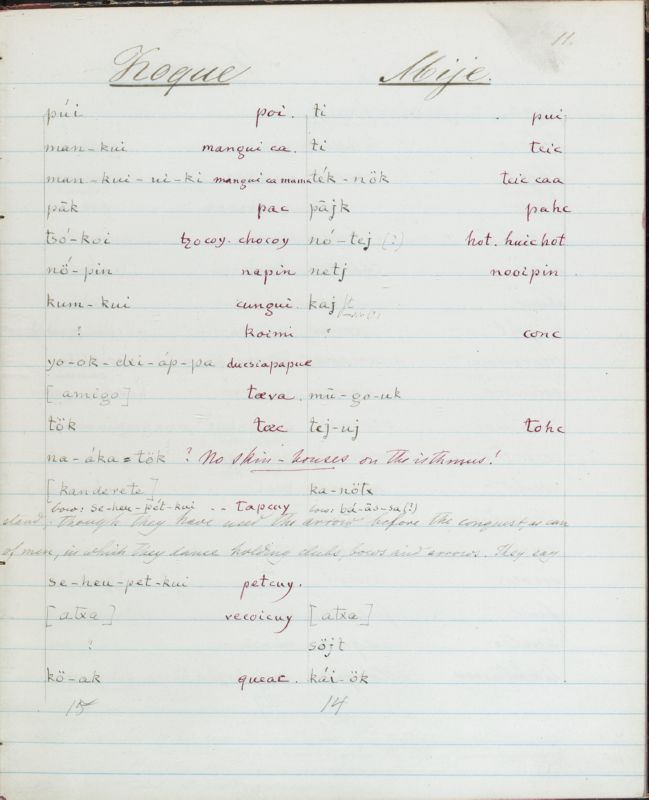 11.
Zoque Mije.
púi poi. ti pui
man-kui mangui ca. ti teic
man-kui-ui-ki mangui ca mama ték-nök teic caa
pāk pac pājk pahc
tsó-koi tzocoy. chocoy nó-tej (?) hot. huichot
nö-pin napin netj nooipin
kum-kui cungui. kaj
? koimi ? conc
yo-ok-dxi-áp-pa ducsiapapue
[amigo] tæva. mū-go-uk
tök tæc tej-uj tohc
na-áka=tök ? No skin-houses on the isthmus!
[kanderete] ka-nötx
bow: se-heu-pét-kui -- tapcuy bow: bá-ās-sa(?)
stand, though they have used the arrow before the conquest, as can
of men, in which they dance holding clubs, bows and arrows. They say
se-heu-pet-kui petcuy.
[atxa] vecoicuy [atxa]
? söjt
kö-ak queac. kái-ök
15 14